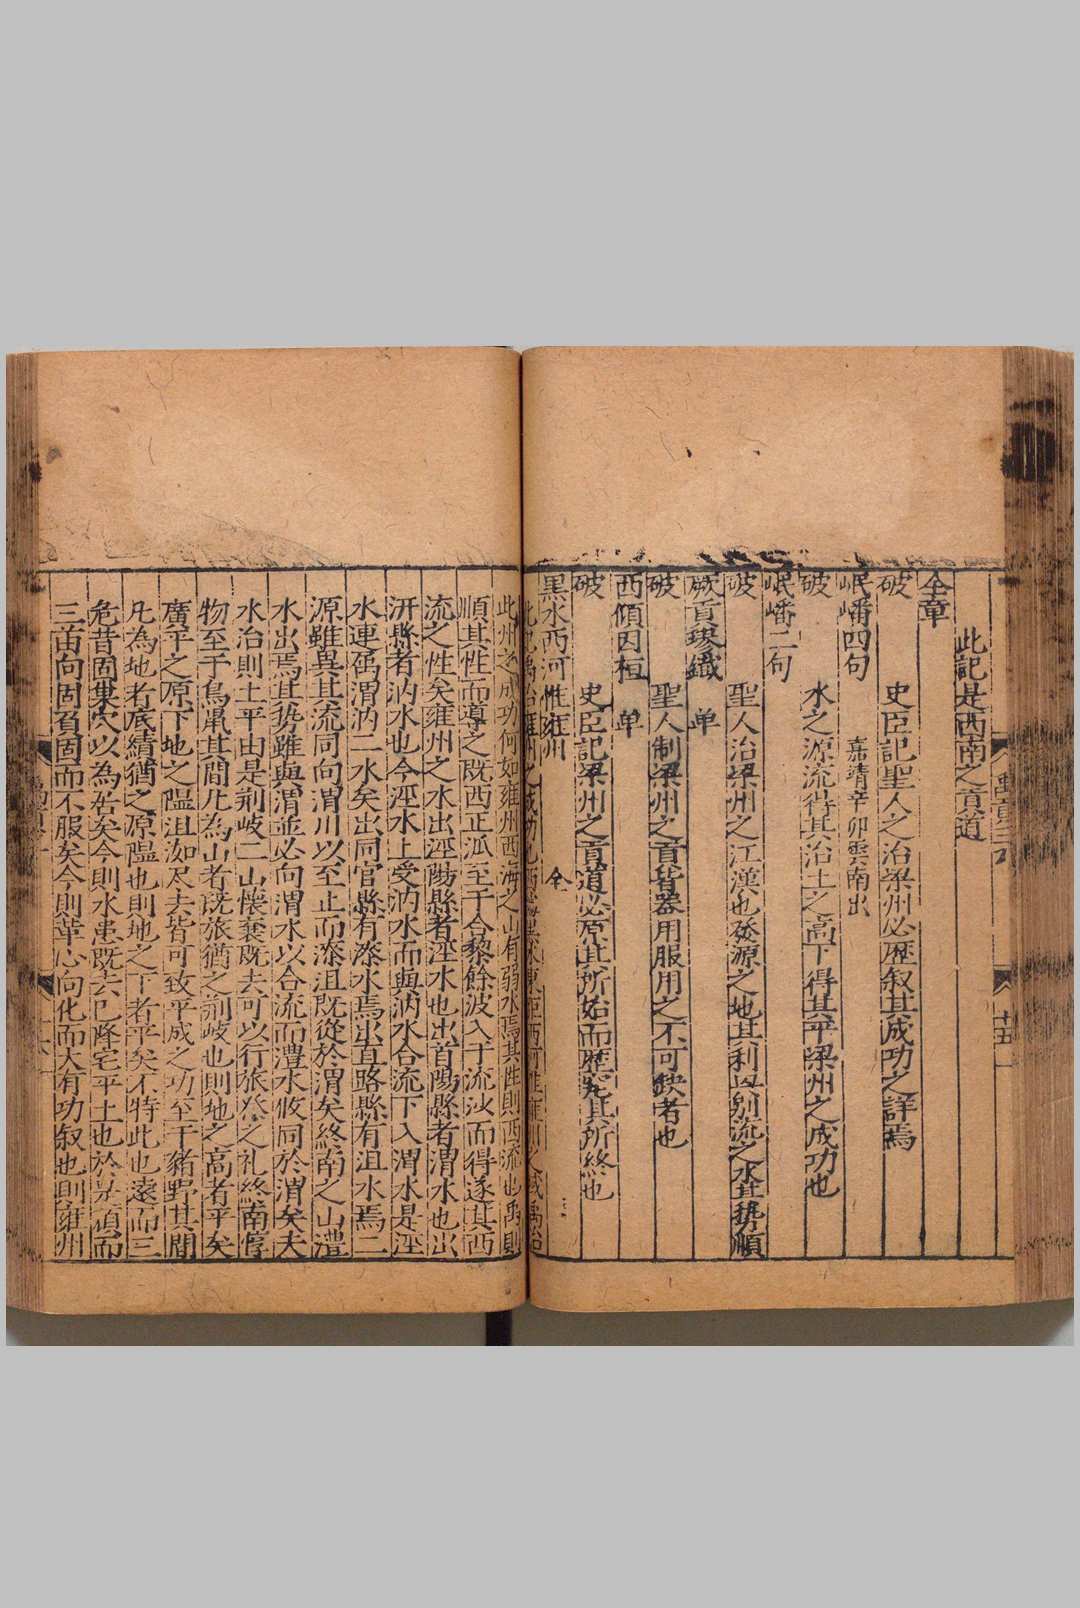 此記是西南之貢道
全章
破 史臣記聖人之治梁州必歷叙其成功之詳焉
岷嶓四句 嘉靖辛卯雲南出
破 水之源流得其治土之高下得其平梁州之成功也
岷嶓二句
破 聖人治梁州之江漢也發源之地其利興别流之水其勢順
厥貢璆鐵 单
破 聖人制梁州之貢皆器用服用之不可缺者也
西傾因桓 单
破 史臣記梁州之貢道必原其所始而歷究其所終也
黑水西河惟雍州 全
此記禹治雍州之成功也西海黑水東距西河惟雍州之域禹治
此州之成功何如雍州西海之山有弱水焉其性則西流也禹則
順其性而導之既西正派至于合黎餘波入于流沙而得遂其西
流之性矣雍州之水出涇陽縣者涇水也出首陽縣者渭水也出
汧縣者汭水也今涇水上受汭水而與汭水合流下入渭水是涇
水連属渭汭二水矣出同官縣有漆水焉出直路縣有沮水焉二
源雖異其流同向渭川以至止而漆沮既從於渭矣終南之山灃
水出焉其势雖與渭並必向渭水以合流而灃水攸同於渭矣夫
水治則土平由是荆岐二山懷襄既去可以行旅祭之礼終南惇
物至于鳥鼠其間凡為山者既旅猶之荊岐也則地之高者平矣
廣平之原下地之隰沮洳尽去皆可致平成之功至于豬野其間
凡為地者底績猶之原隰也則地之下者平矣不特此也遠而三
危昔固巢穴以為居矣今則水患既去已降宅平土也於是頑而
三苗向固負固而不服矣今則革心向化而大有功叙也則雍州
十五